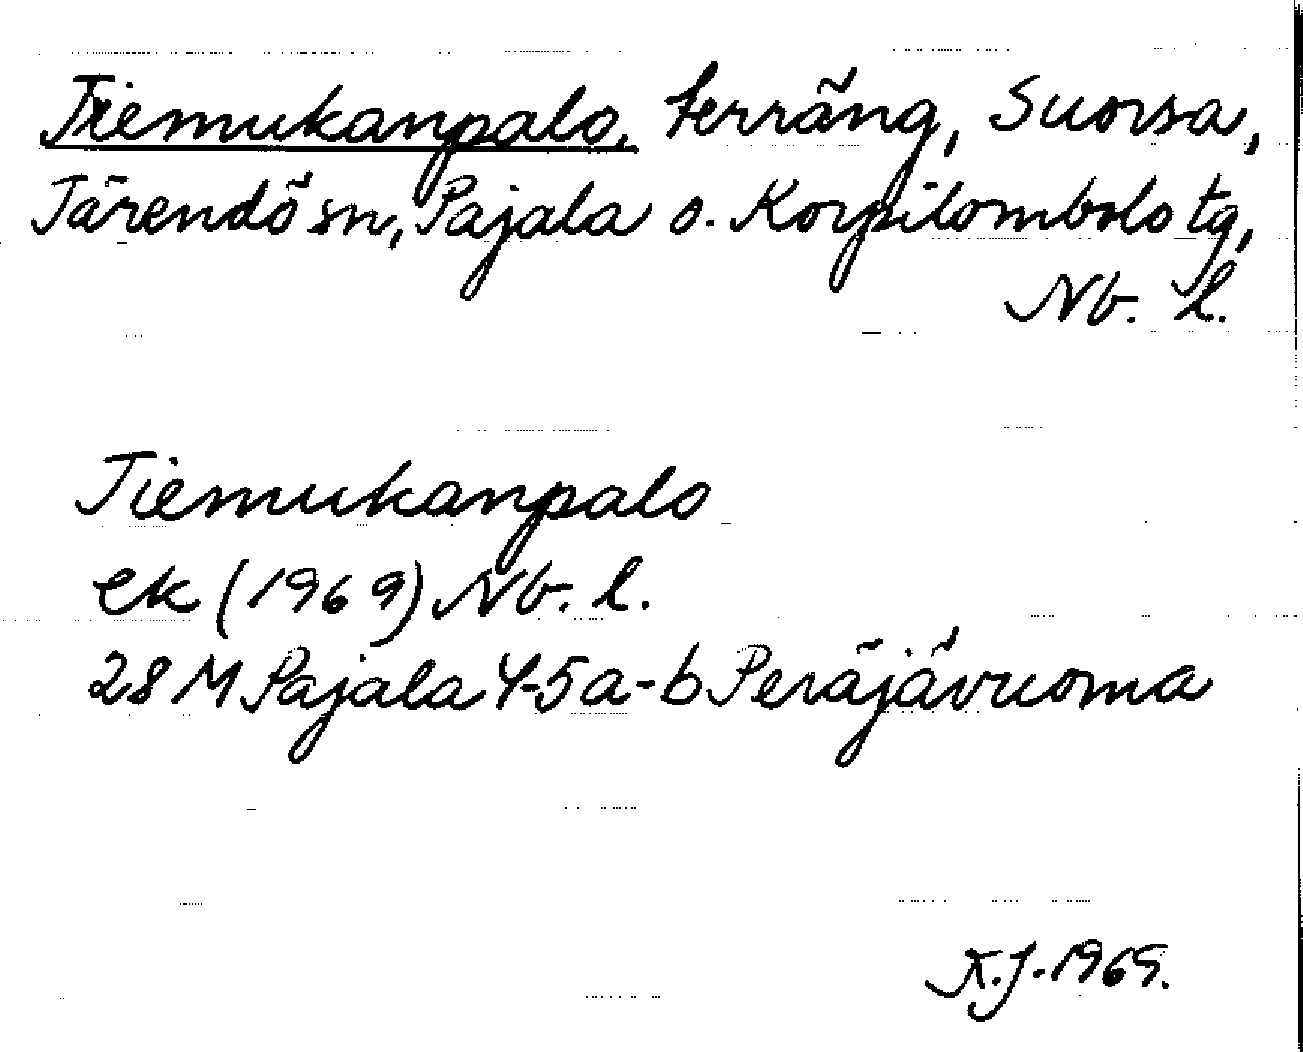 Tiemukanpalo, terräng, Suorsa,
Tärendö sn, Pajala o. Korpilombolo tg,
Nb. l.
Tiemukanpalo
ek (1969) Nb. l.
28 M Pajala 4-5 a-b Peräjävuoma
K.J. 1969.